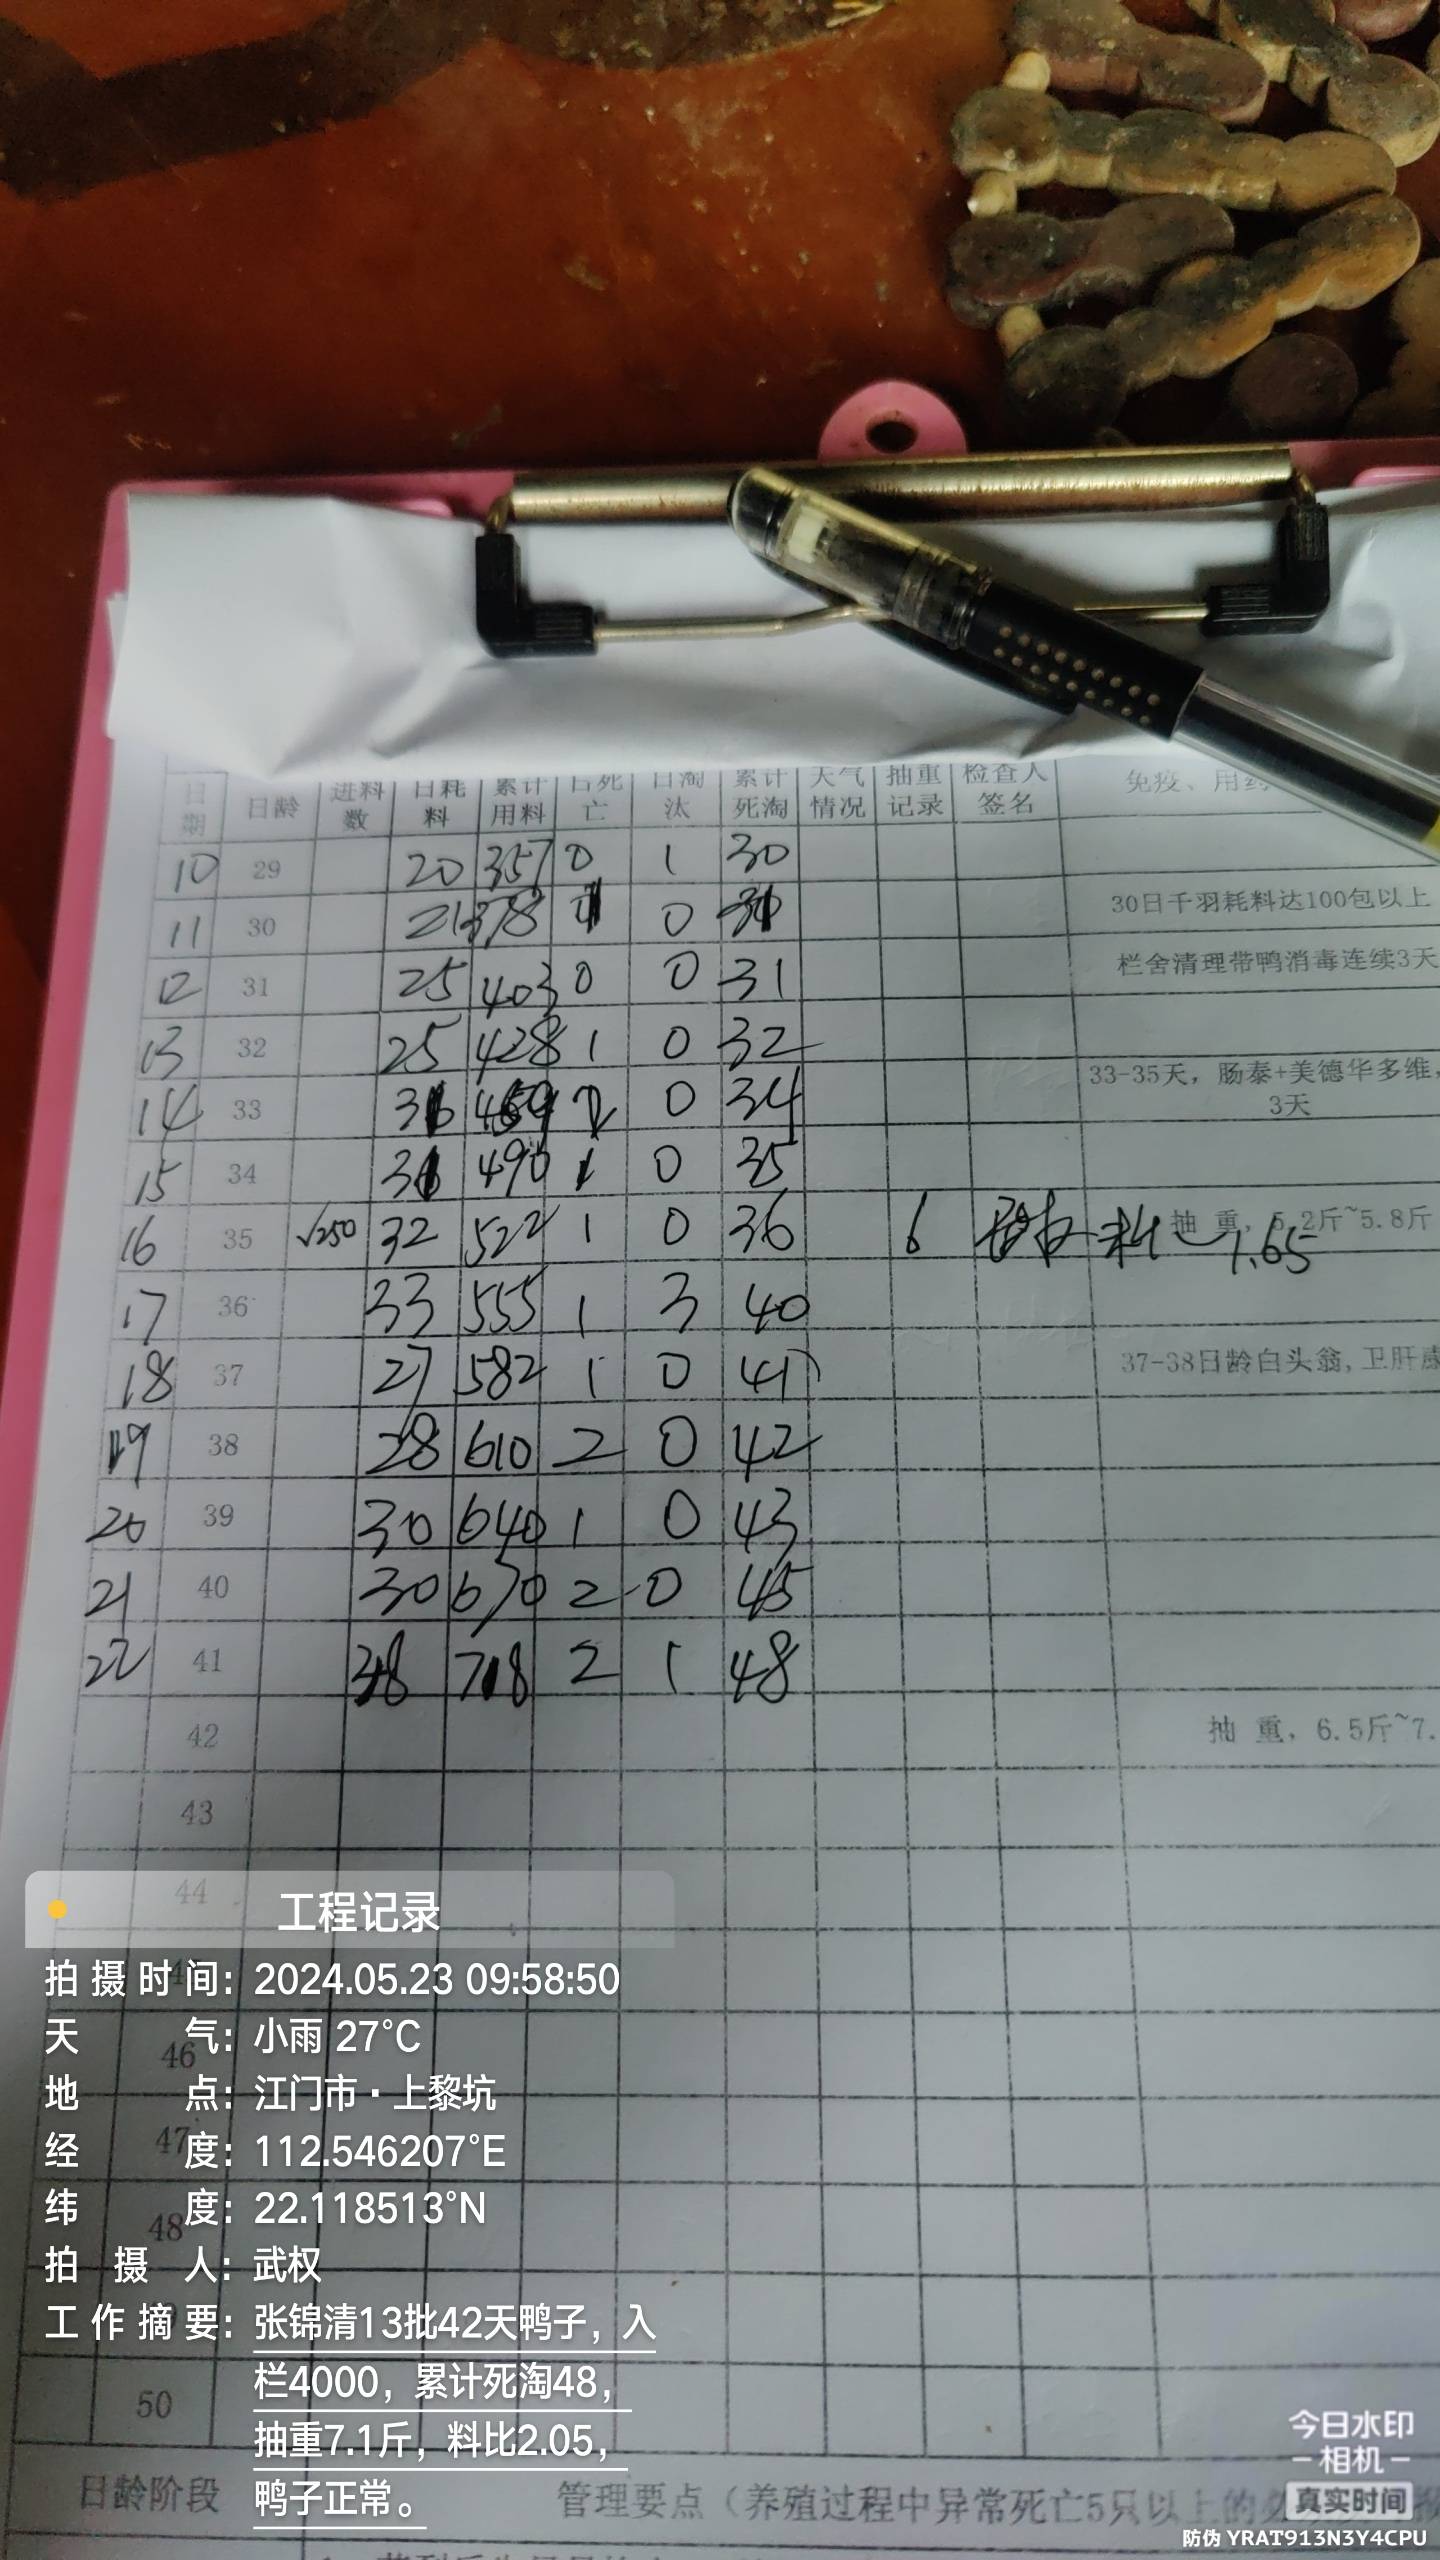 日期 日龄 进料数 日耗料 累计用料 日死亡 日淘汰 累计死淘 天气情况 抽重记录 检查人签名 免疫、用药
10 29 20 357 0 1 30
11 30 21 378 1 0 31 30日千羽耗料达100包以上
12 31 25 403 0 0 31 栏舍清理带鸭消毒连续3天
13 32 25 428 1 0 32
14 33 31 459 2 0 34 33-35天，肠泰+美德华多维，3天
15 34 31 490 1 0 35
16 35 √250 32 522 1 0 36 6 武权 抽 重，5.2斤~5.8斤 料比1.65
17 36 33 555 1 3 40
18 37 27 582 1 0 41 37-38日龄白头翁,卫肝
19 38 28 610 2 0 42
20 39 30 640 1 0 43
21 40 30 670 2 0 45
22 41 718 2 1 48
42 抽 重，6.5斤~7.
43
44
46
47
48
50
日龄阶段 管理要点（养殖过程中异常死亡5只以上的
工程记录
拍摄时间：2024.05.23 09:58:50
天气：小雨 27°C
地点：江门市·上黎坑
经度：112.546207°E
纬度：22.118513°N
拍摄人：武权
工作摘要：张锦清13批42天鸭子，入
栏4000，累计死淘48，
抽重7.1斤，料比2.05，
鸭子正常。
今日水印
相机
真实时间
防伪 YRAT913N3Y4CPU